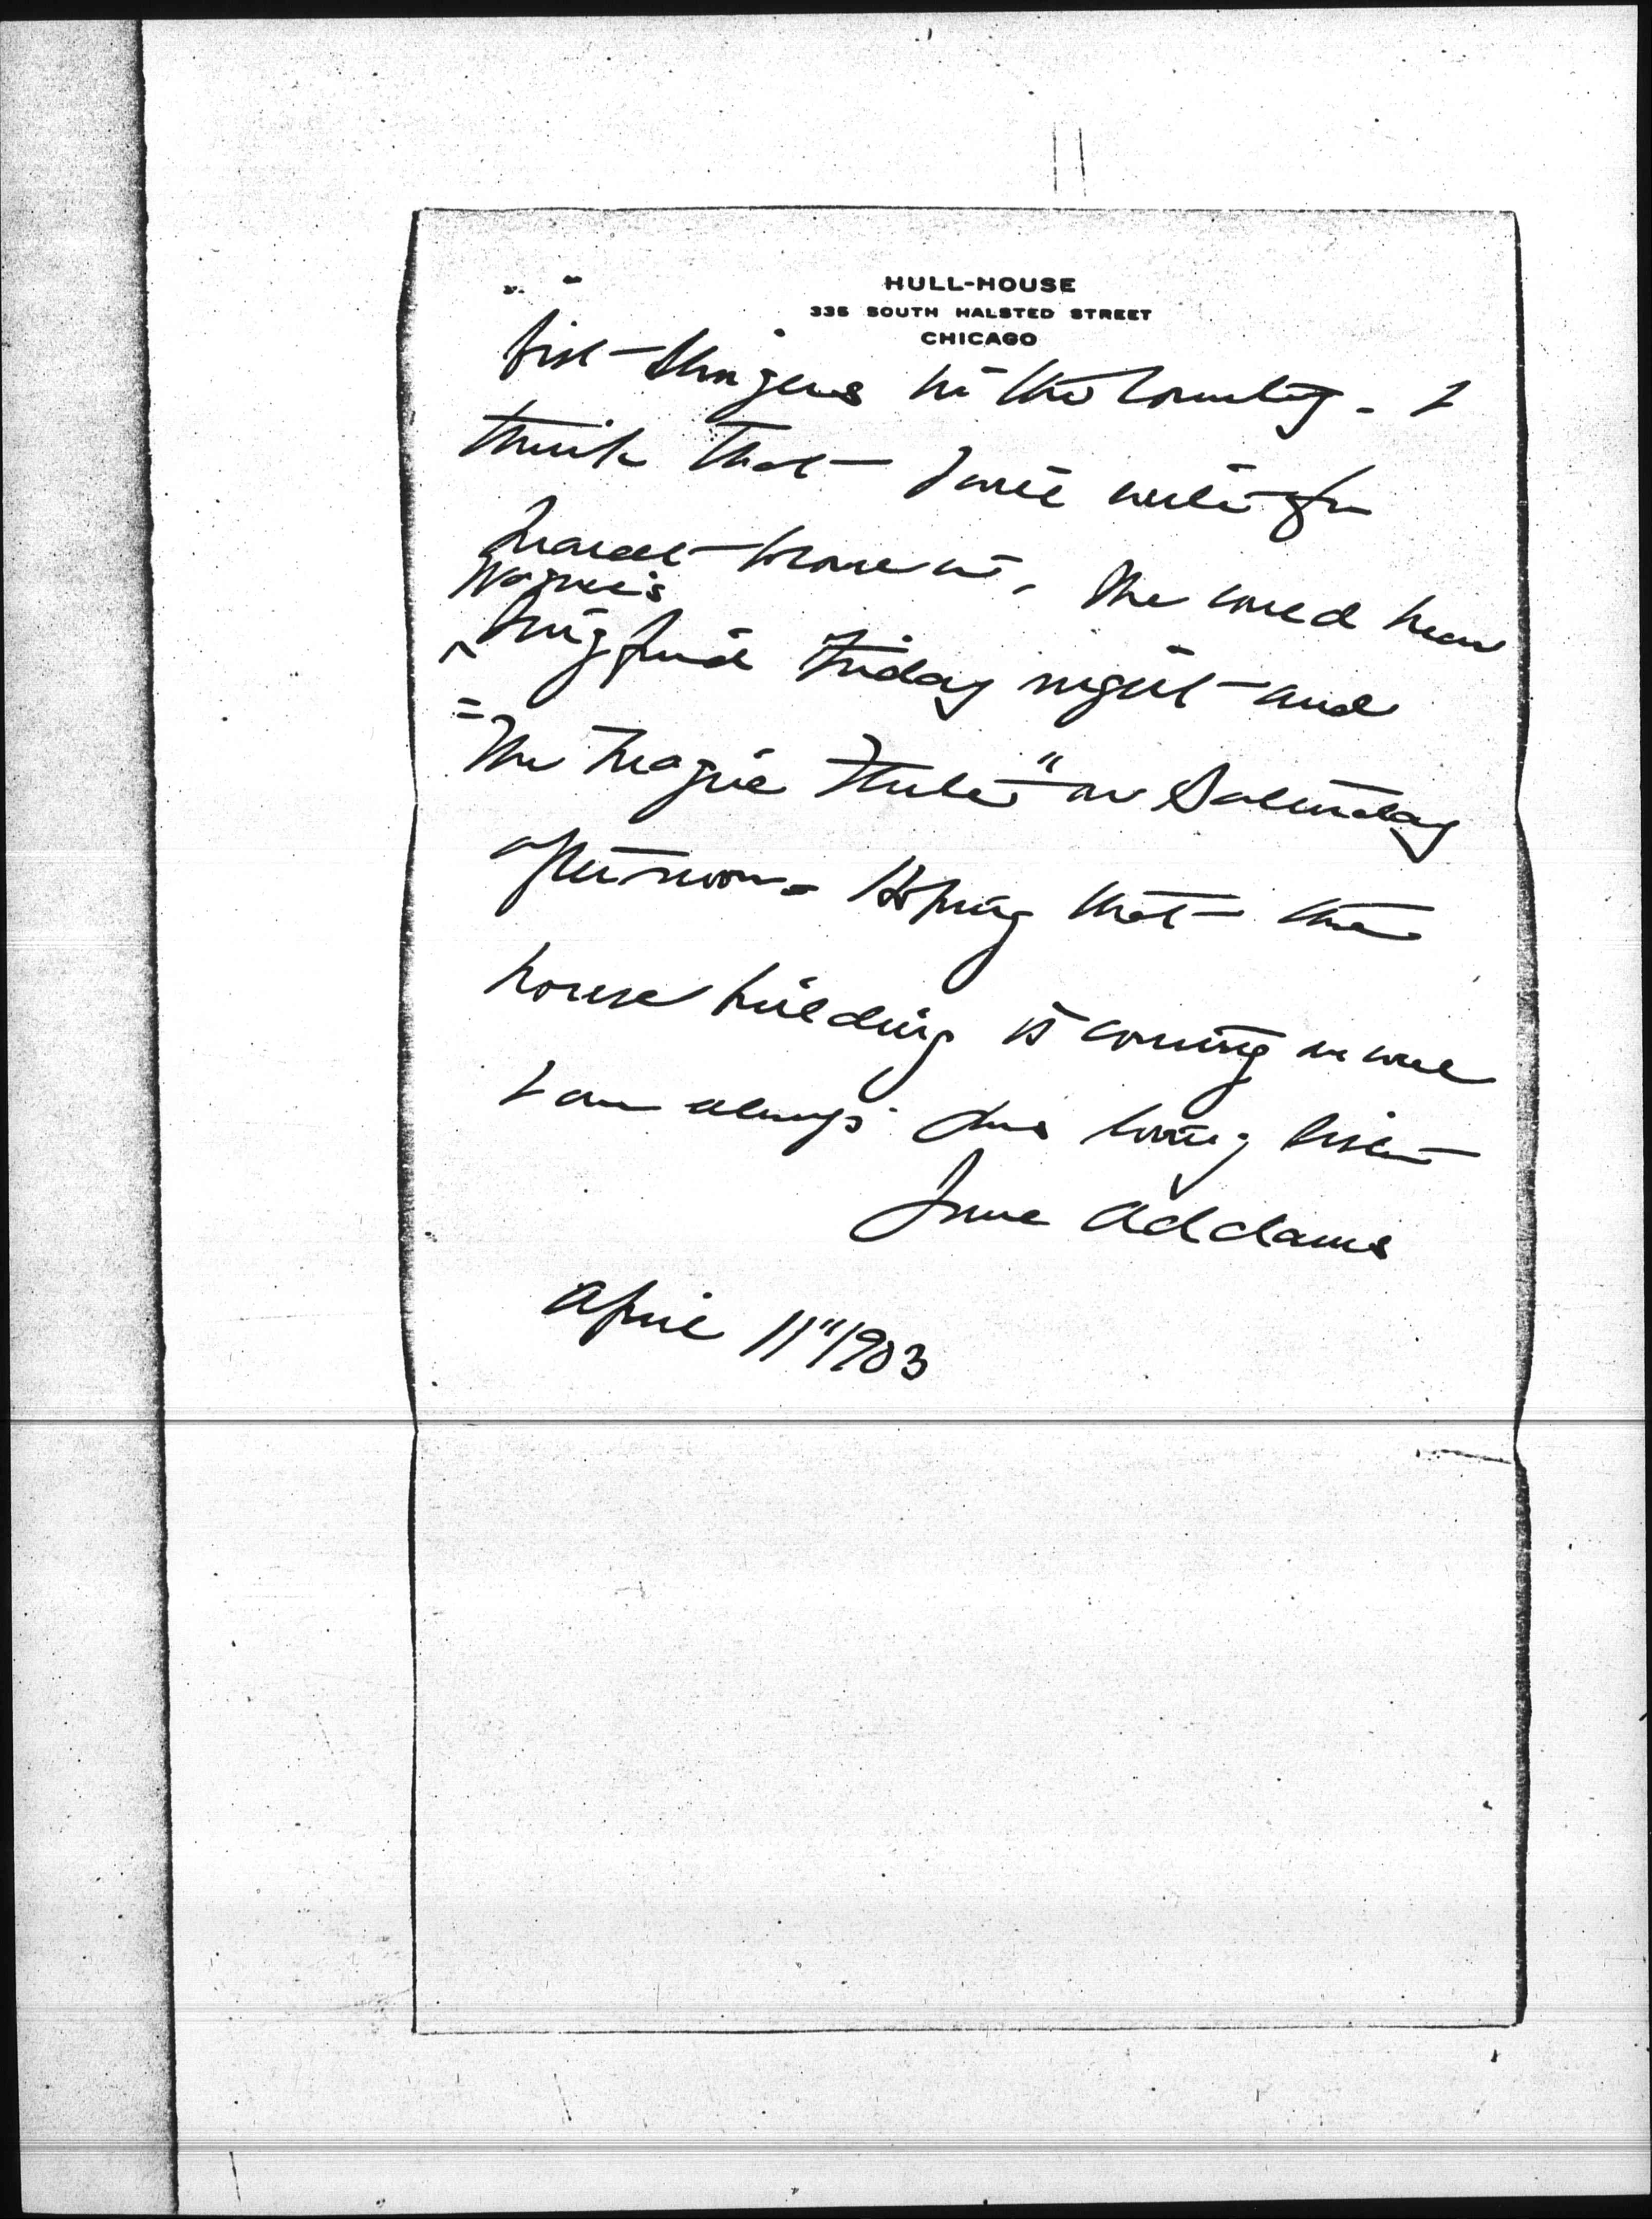 HULL-HOUSE
335 SOUTH HALSTED STREET
CHICAGO
first singers in the country. I
think that I will write for
Marcet to come in. She could hear
Wagner's
^ Siegfried Friday night and
"The Magic Flute" on Saturday
afternoon. Hoping that the
house building is coming on well
I am always your loving sister
Jane Addams
April 11" 1903